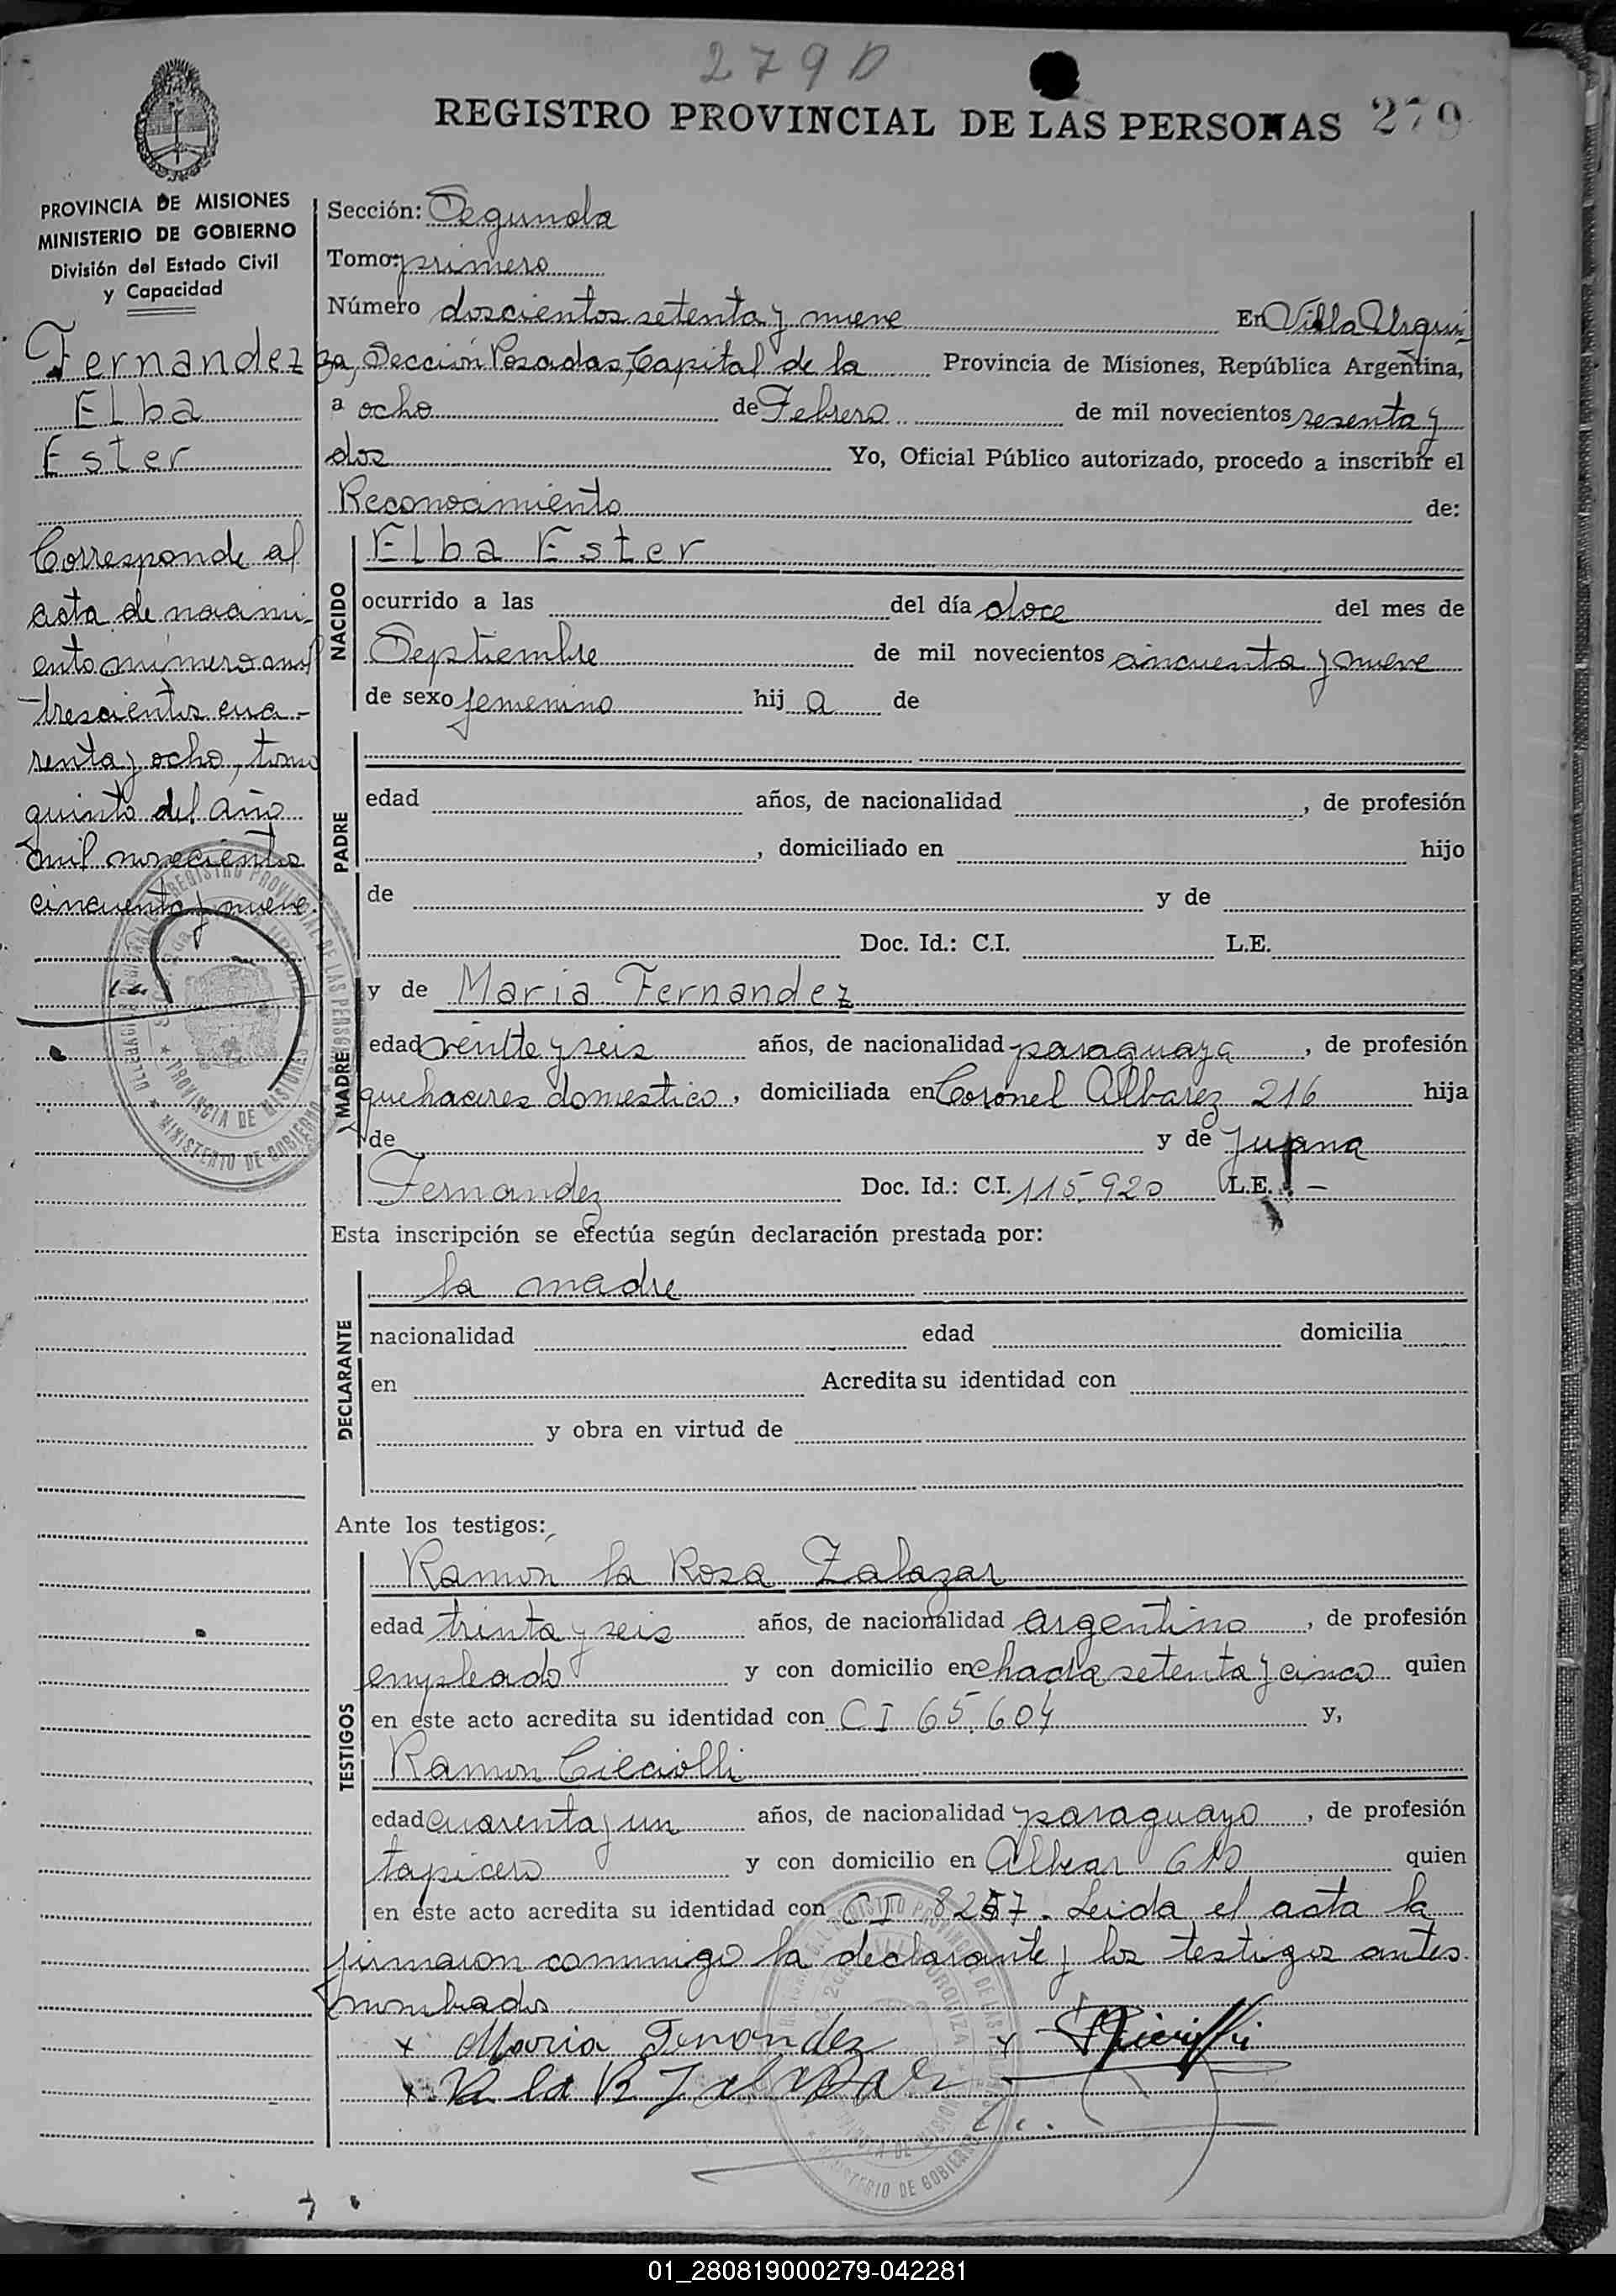 279 D
REGISTRO PROVINCIAL DE LAS PERSONAS 279
PROVINCIA DE MISIONES
MINISTERIO DE GOBIERNO
División del Estado Civil
y Capacidad
Fernandez
Elba
Ester
Corresponde al
acta de nacimi-
ento número mil
trescientos cua-
renta y ocho, tomo
quinto del año
mil novecientos
cincuenta y nueve.
Sección: Segunda
Tomo: primero
Número doscientos setenta y nueve En Villa Urqui-
za, Sección Posadas, Capital de la Provincia de Misiones, República Argentina,
a ocho de Febrero de mil novecientos sesenta y
dos Yo, Oficial Público autorizado, procedo a inscribir el
Reconocimiento de:
NACIDO
Elba Ester
ocurrido a las del día doce del mes de
Septiembre de mil novecientos cincuenta y nueve
de sexo femenino hij a de
PADRE
edad años, de nacionalidad , de profesión
, domiciliado en hijo
de y de
Doc. Id.: C.I. L.E.
MADRE
y de Maria Fernandez
edad veintte y seis años, de nacionalidad paraguaya , de profesión
quehaceres domestico, domiciliada en Coronel Albarez 216 hija
de y de Juana
Fernandez Doc. Id.: C.I. 115.920 L.E. -
Esta inscripción se efectúa según declaración prestada por:
DECLARANTE
la madre
nacionalidad edad domicilia
en Acredita su identidad con
y obra en virtud de
Ante los testigos:
TESTIGOS
Ramón la Rosa Zalazar
edad trinta y seis años, de nacionalidad argentino , de profesión
empleado y con domicilio en chacra setenta y cinco quien
en este acto acredita su identidad con CI 65.604 y,
Ramon
edad cuarenta y un años, de nacionalidad paraguayo , de profesión
tapicero y con domicilio en Alvear 610 quien
en este acto acredita su identidad con CI. Leida el acta la
firmaron conmigo la declarante y los testigos antes
nombrados
x Maria Fernandez
x R la R Zalazar
REGISTRO PROVINCIAL DE LAS PERSONAS
PROVINCIA DE MISIONES
MINISTERIO DE GOBIERNO
01_280819000279-042281